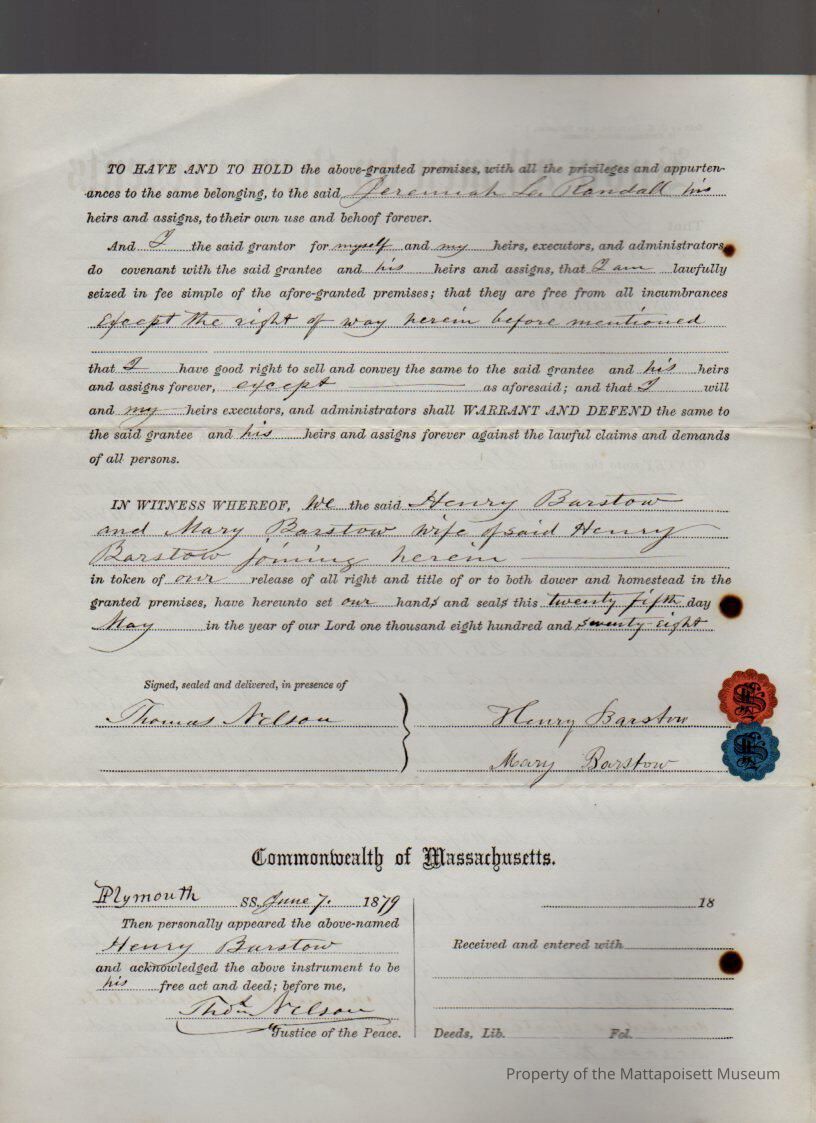 TO HAVE AND TO HOLD the above-granted premises, with all the privileges and appurten-
ances to the same belonging, to the said Jeremiah L. Randall his
heirs and assigns, to their own use and behoof forever.
And I the said grantor for myself and my heirs, executors, and administrators,
do covenant with the said grantee and his heirs and assigns, that I am lawfully
seized in fee simple of the afore-granted premises; that they are free from all incumbrances
Except the right of way herein before mentioned
that I have good right to sell and convey the same to the said grantee and his heirs
and assigns forever, except as aforesaid; and that I will
and my heirs executors, and administrators shall WARRANT AND DEFEND the same to
the said grantee and his heirs and assigns forever against the lawful claims and demands
of all persons.
IN WITNESS WHEREOF, We the said Henry Barstow
and Mary Barstow Wife of said Henry
Barstow joining herein
in token of our release of all right and title of or to both dower and homestead in the
granted premises, have hereunto set our hands and seals this twenty fifth day
May in the year of our Lord one thousand eight hundred and seventy-eight
Signed, sealed and delivered, in presence of
Thomas Nelson
Henry Barstow
Mary Barstow
Commonwealth of Massachusetts.
Plymouth SS. June 7. 1879
Then personally appeared the above-named
Henry Barstow
and acknowledged the above instrument to be
his free act and deed; before me,
Thos Nelson
Justice of the Peace.
18
Received and entered with
Deeds, Lib. Fol.
Property of the Mattapoisett Museum